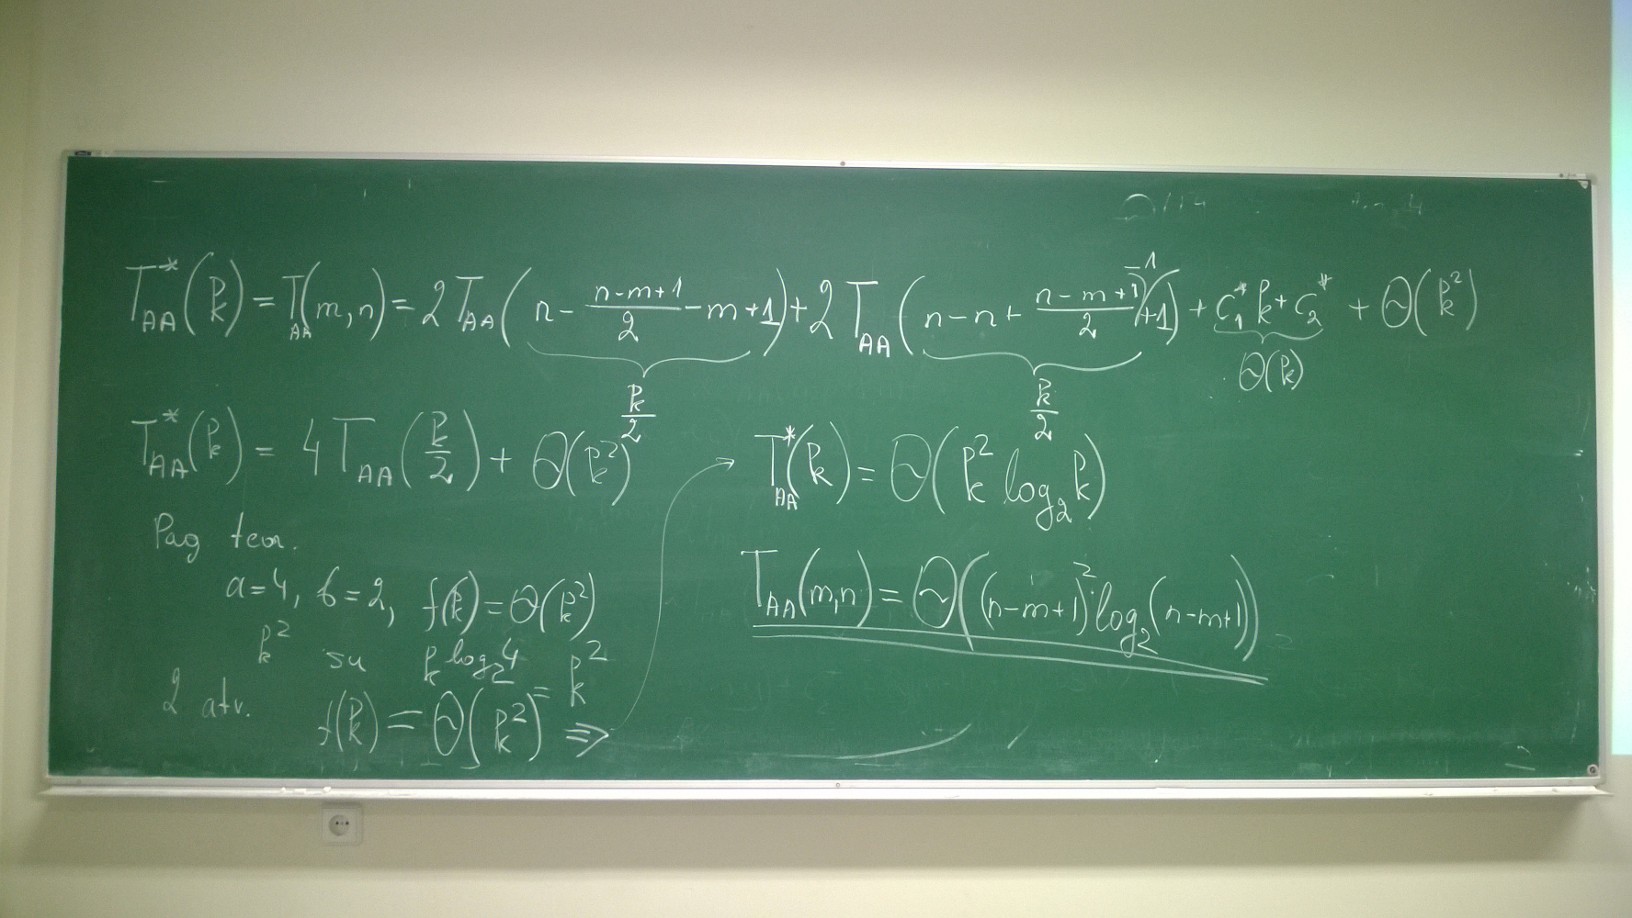 T*_AA(k) = T_AA(m,n) = 2T_AA(n - (n-m+1)/2 - m + 1) + 2T_AA(n - n + (n-m+1)/2 - 1 + 1) + c*_1 k + c*_2 + Θ(k²)
k/2 k/2 Θ(k)
T*_AA(k) = 4T_AA(k/2) + Θ(k²)
Pag teor.
a=4, b=2, f(k) = Θ(k²)
k² su k^(log_2 4) = k²
2 atv. f(k) = Θ(k²) ⇒
T*_AA(k) = Θ(k² log_2 k)
T_AA(m,n) = Θ((n-m+1)² log_2(n-m+1))